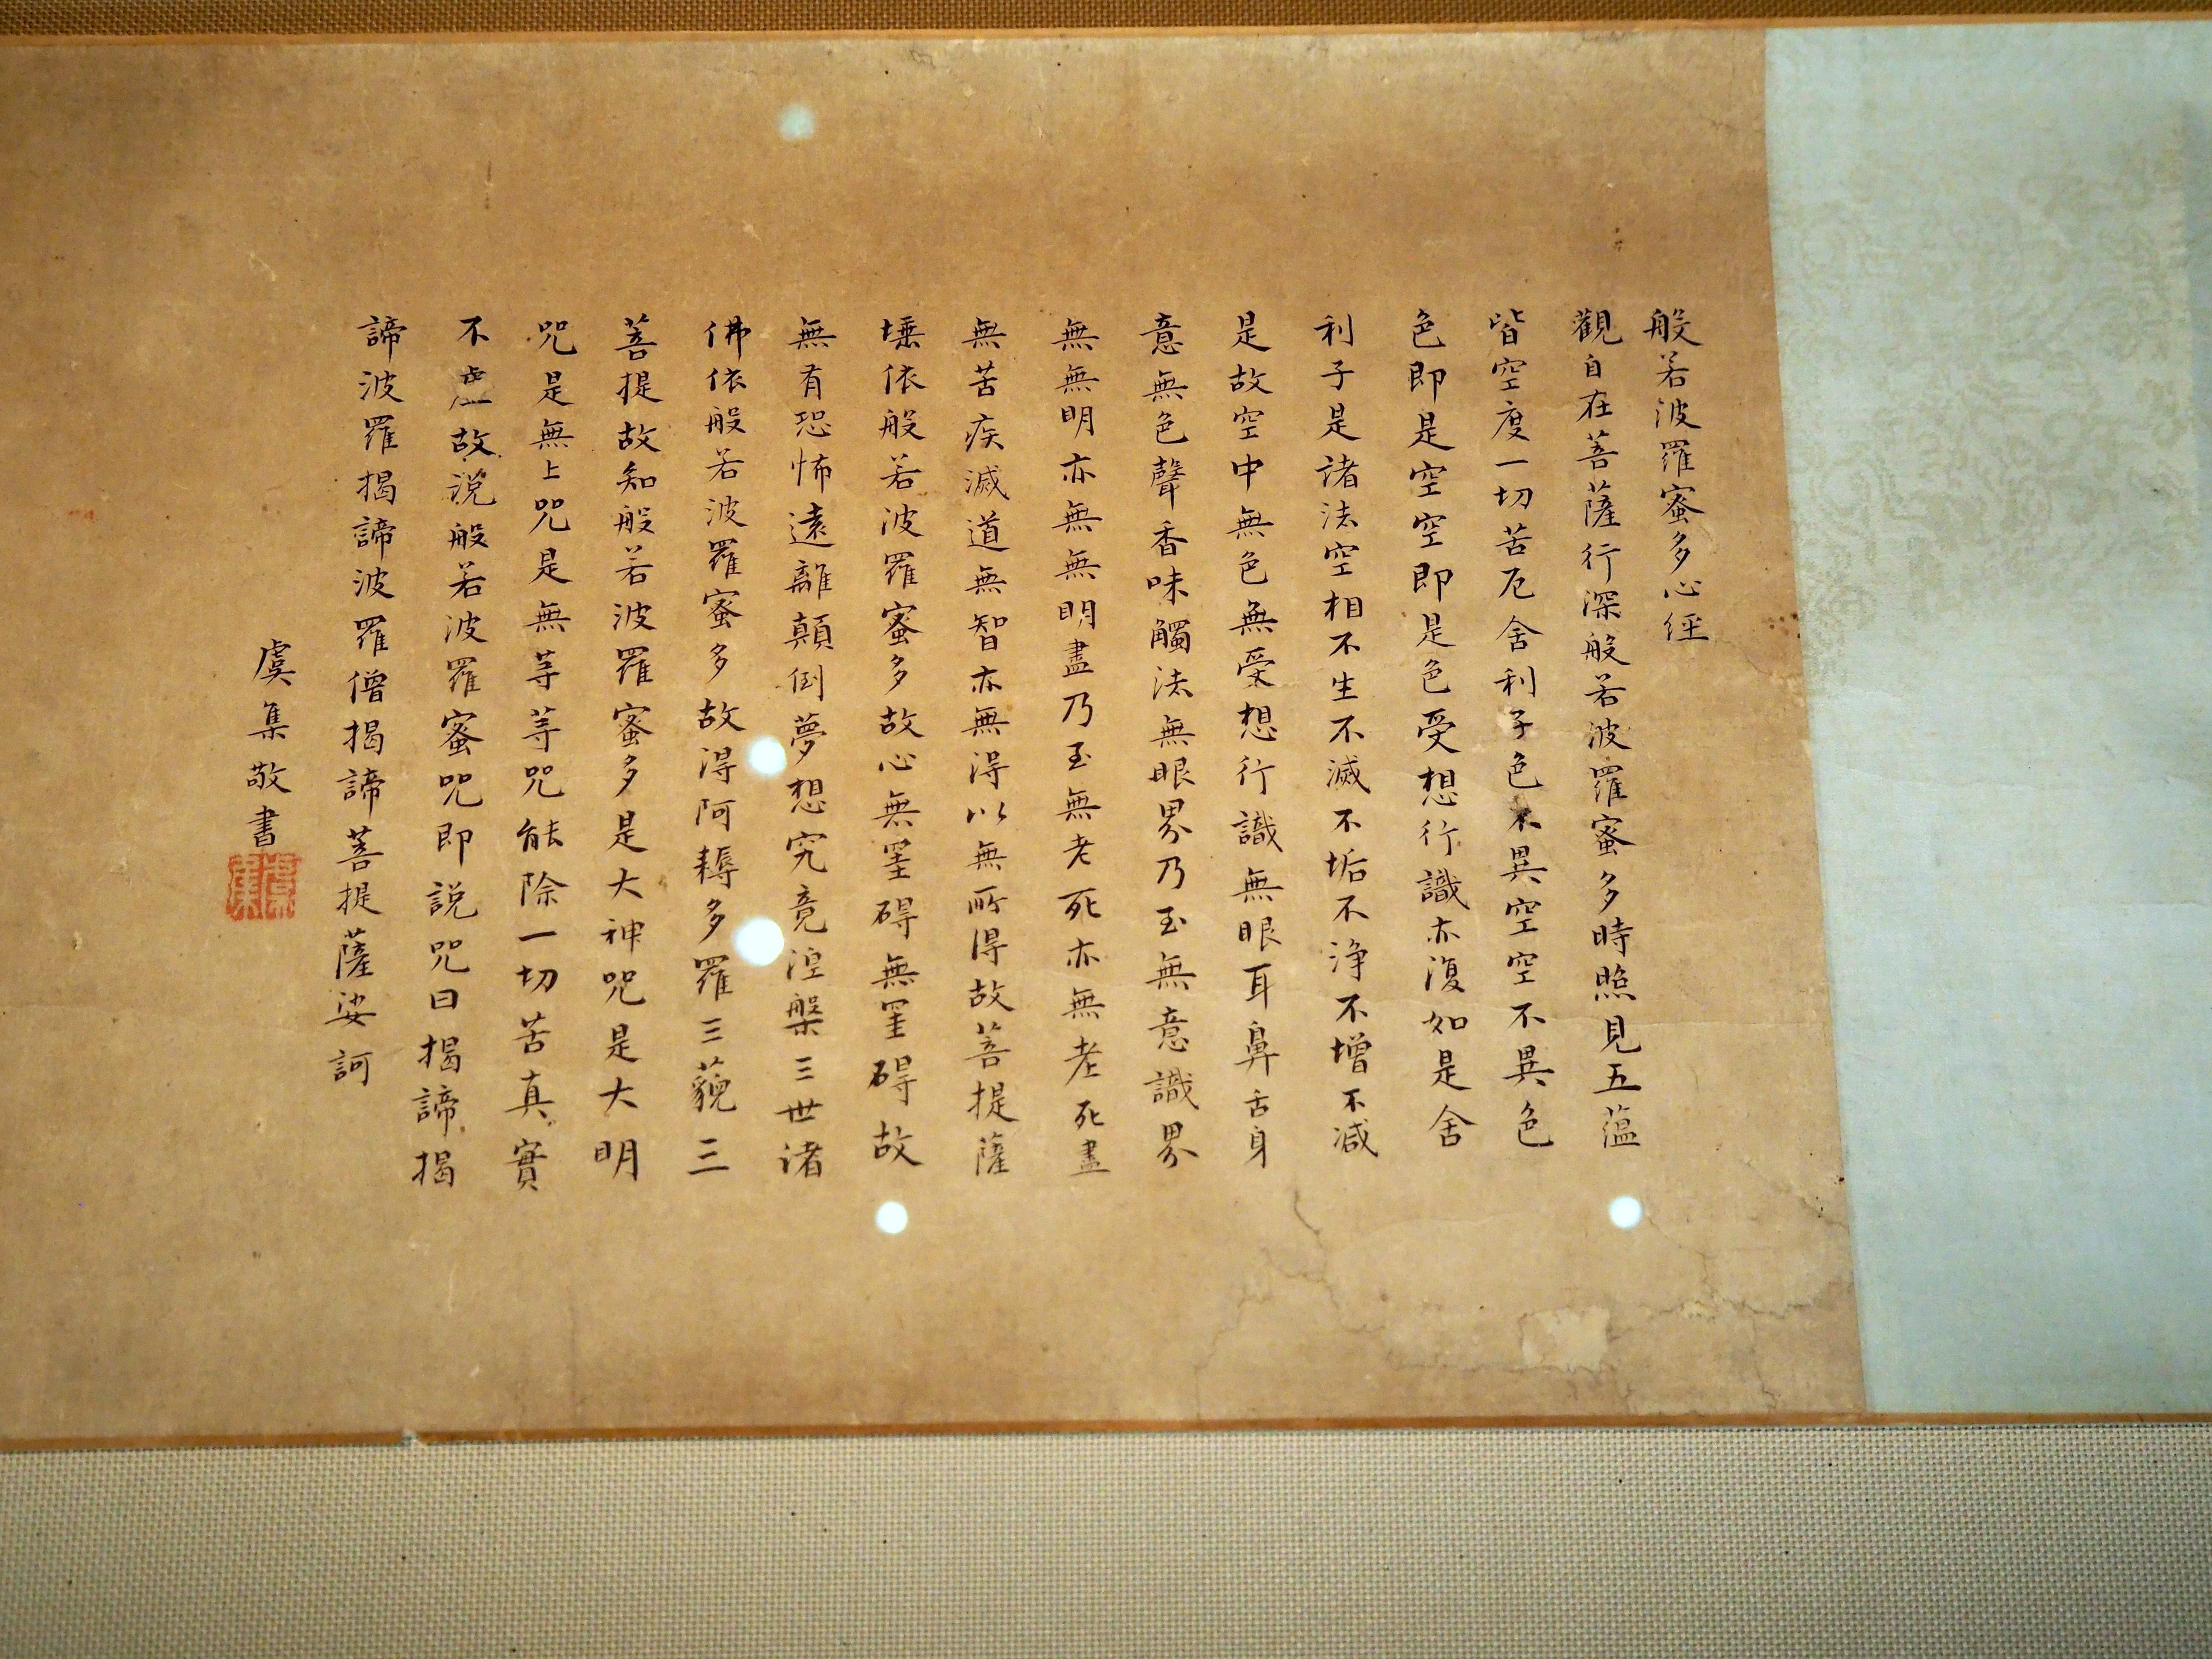 般若波羅蜜多心经
觀自在菩薩行深般若波羅蜜多時照見五蕴
皆空度一切苦厄舍利子色不異空空不異色
色即是空空即是色受想行識亦復如是舍
利子是諸法空相不生不滅不垢不浄不增不減
是故空中無色無受想行識無眼耳鼻舌身
意無色聲香味觸法無眼界乃至無意識界
無無明亦無無明盡乃至無老死亦無老死盡
無苦疾滅道無智亦無得以無所得故菩提薩
埵依般若波羅蜜多故心無罣碍無罣碍故
無有恐怖遠離顛倒夢想究竟涅槃三世诸
佛依般若波羅蜜多故得阿耨多羅三藐三
菩提故知般若波羅蜜多是大神咒是大明
咒是無上咒是無等等咒能除一切苦真實
不虚故說般若波羅蜜咒即說咒曰揭諦揭
諦波羅揭諦波羅僧揭諦菩提薩娑訶
虞集敬書
虞集